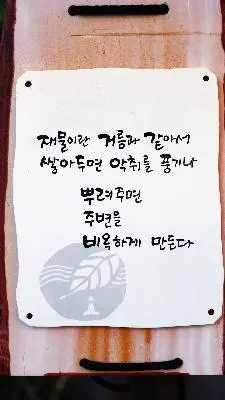 재물이란 거름과 같아서
쌓아두면 악취를 풍기나
뿌려주면
주변을
비옥하게 만든다